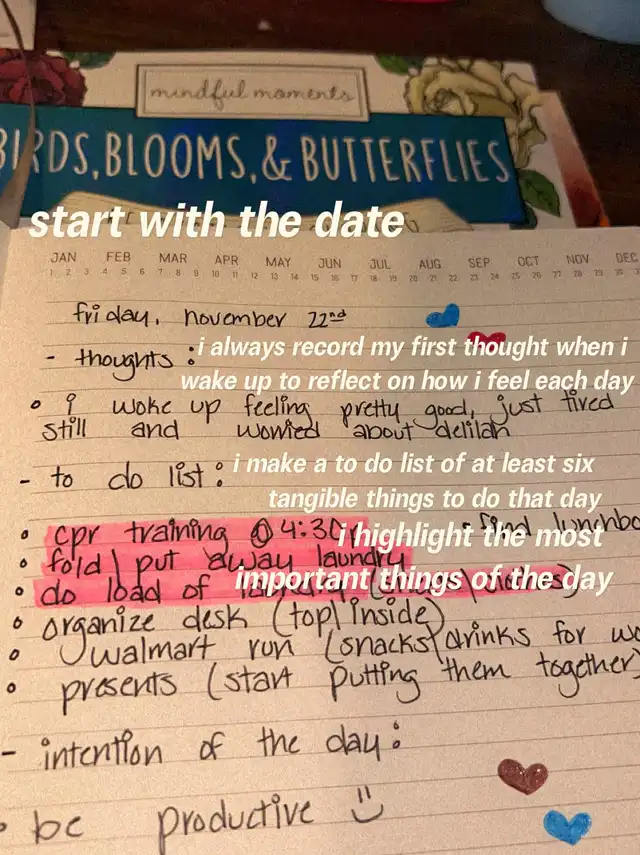 mindful moments
BIRDS, BLOOMS, & BUTTERFLIES
start with the date
JAN FEB MAR APR MAY JUN JUL AUG SEP OCT NOV DEC
1 2 3 4 5 6 7 8 9 10 11 12 13 14 15 16 17 18 19 20 21 22 23 24 25 26 27 28 29 30 3
friday, november 22nd
- thoughts :
i always record my first thought when i
wake up to reflect on how i feel each day
• i woke up feeling pretty good, just tired
still and worried about delilah
- to do list :
i make a to do list of at least six
tangible things to do that day
• cpr training @ 4:30
• find lunchbo
i highlight the most
• fold | put away laundry
• do load of
important things of the day
• organize desk (top| inside)
• walmart run (snacks|drinks for wo
• presents (start putting them together)
- intention of the day :
• be productive :)